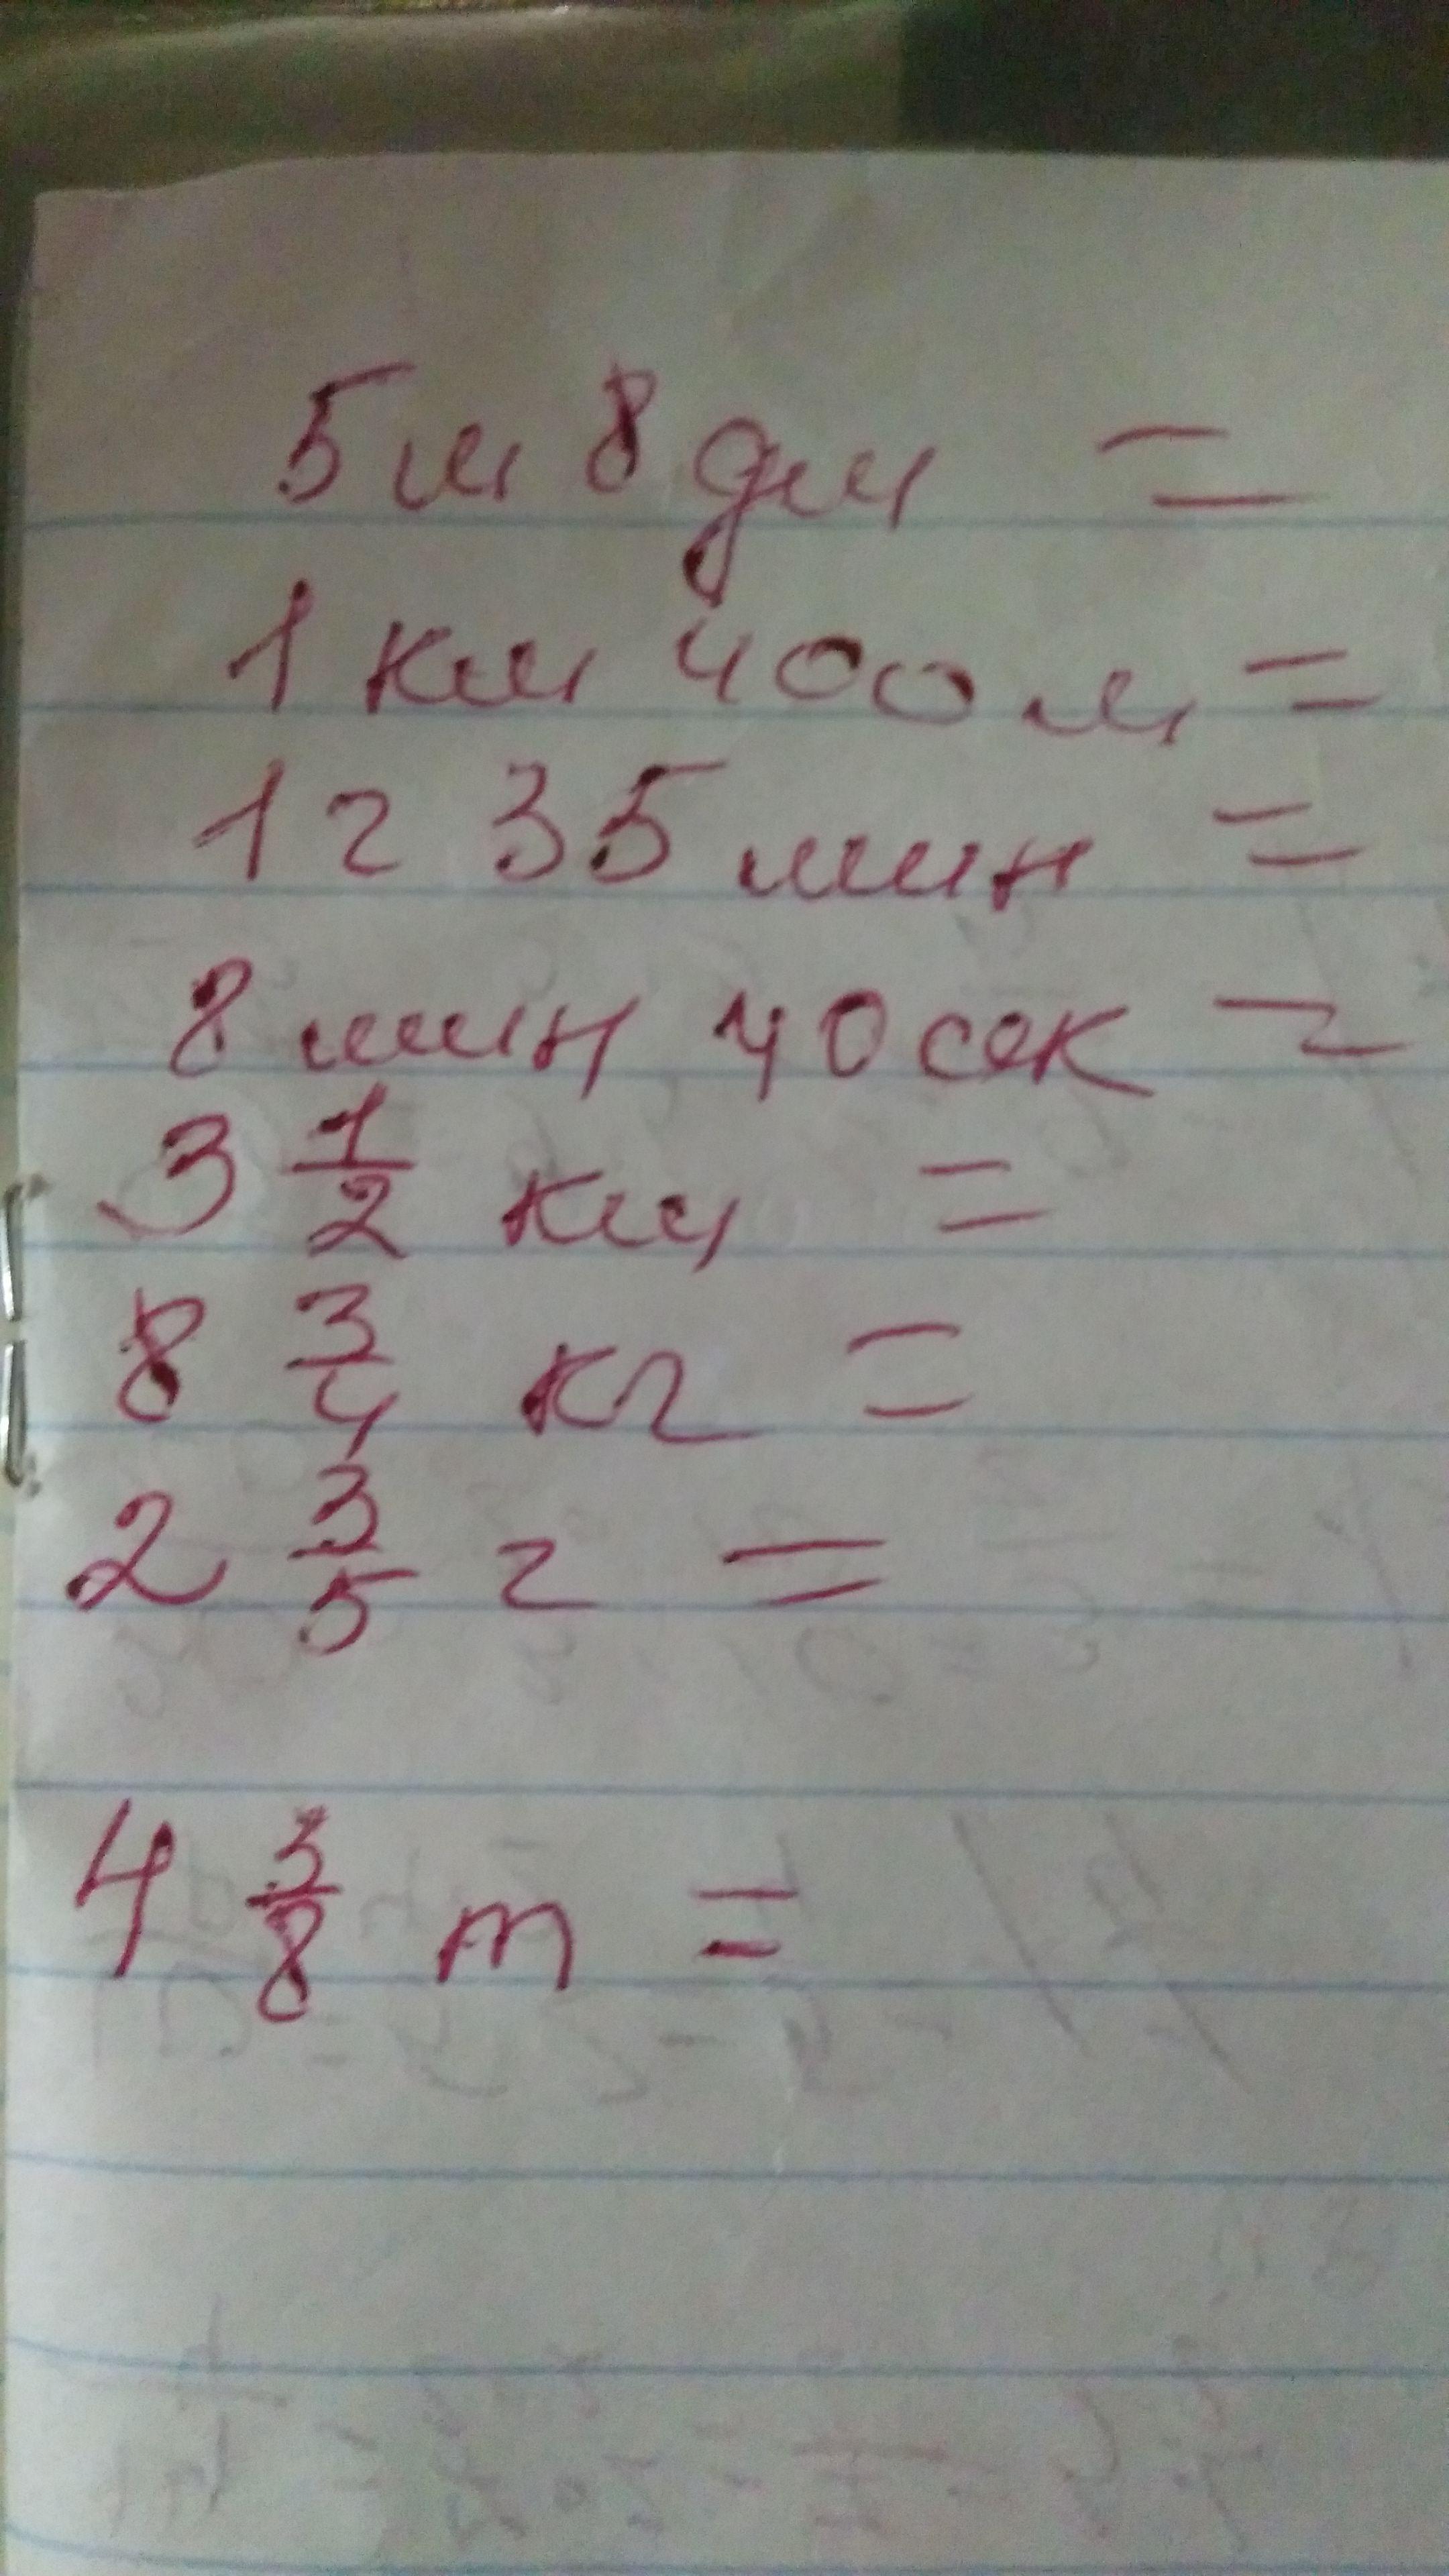 5 м 8 дм =
1 км 400 м =
1 г 35 мин =
8 мин 40 сек =
3 1/2 км =
8 3/4 кг =
2 3/5 г =
4 3/8 т =